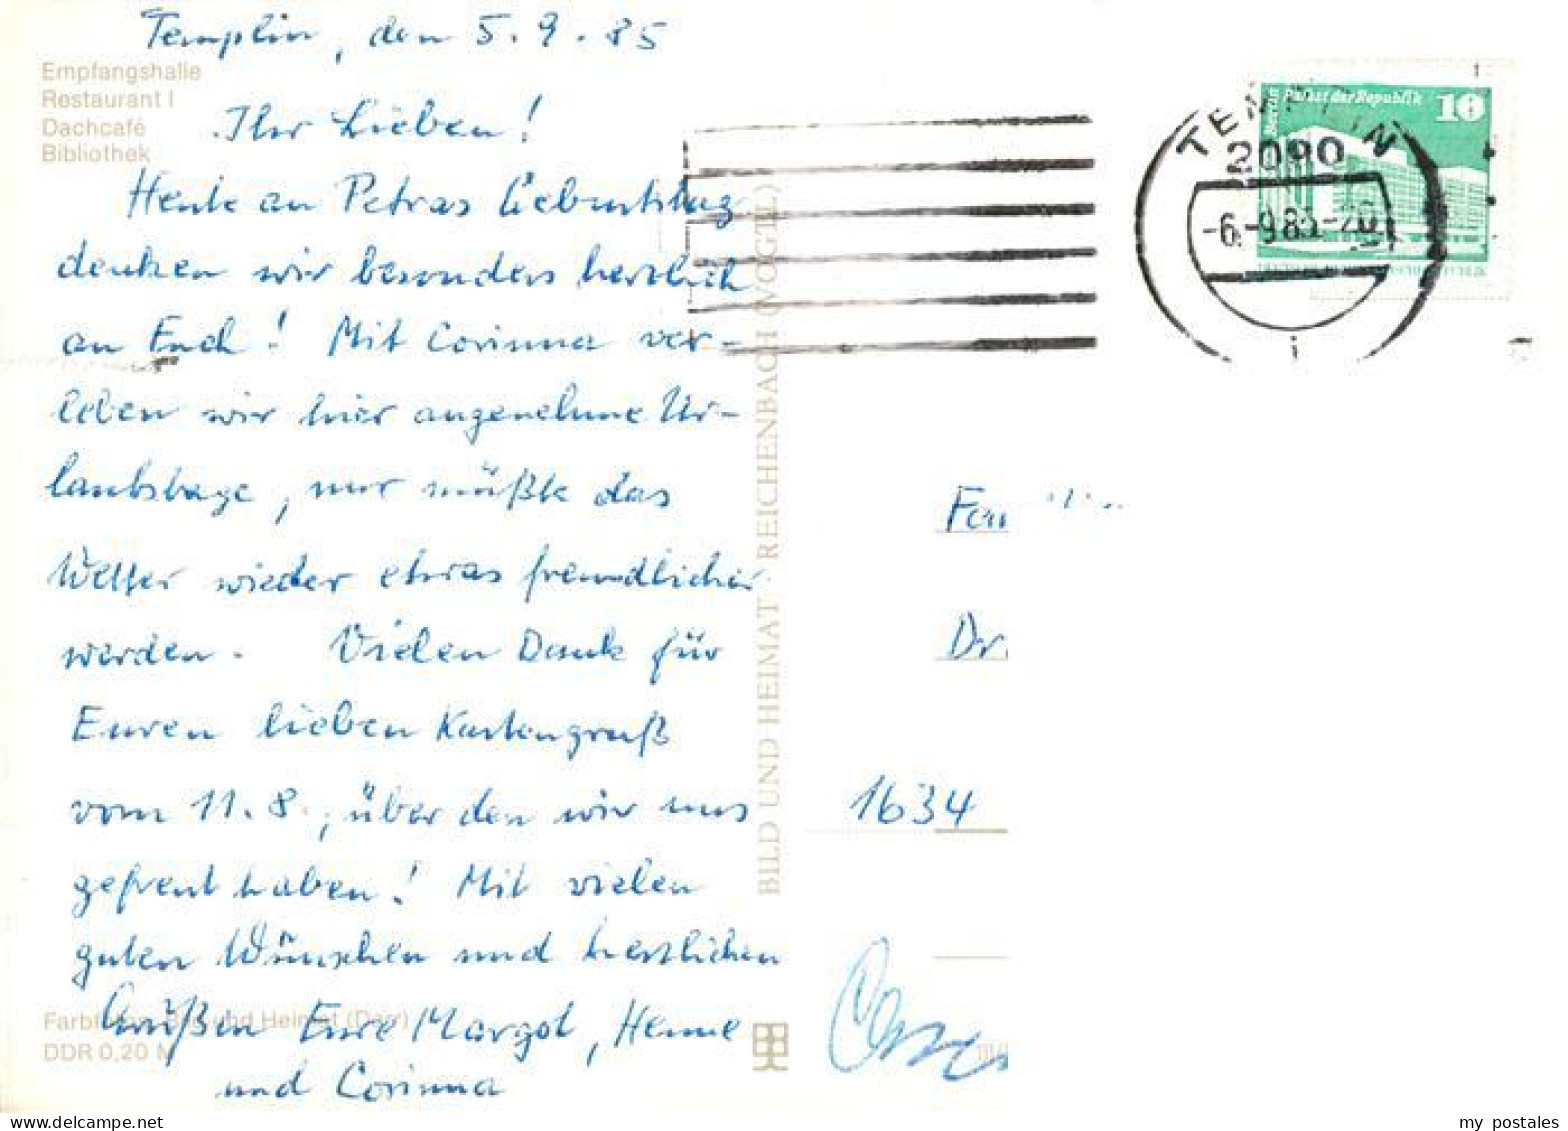 Templin, den 5.9.85
Empfangshalle
Restaurant I
Dachcafé
Bibliothek
Ihr Lieben!
Heute an Petras Geburtstag
denken wir besonders herzlich
an Euch! Mit Corinna ver-
leben wir hier angenehme Ur-
laubstage, nur müßte das
Wetter wieder etwas freundlicher
werden. Vielen Dank für
Euren lieben Kartengruß
vom 11.8., über den wir uns
gefreut haben! Mit vielen
guten Wünschen und herzlichen
Grüßen Eure Margot, Henne
und Corinna
Farbfotos: Bild und Heimat (Darr)
DDR 0,20 M
BILD UND HEIMAT REICHENBACH (VOGTL)
Berlin Palast der Republik 10
TEMPLIN
2090
-6.-9.85-20
i
Fam
Dr.
1634
my postales